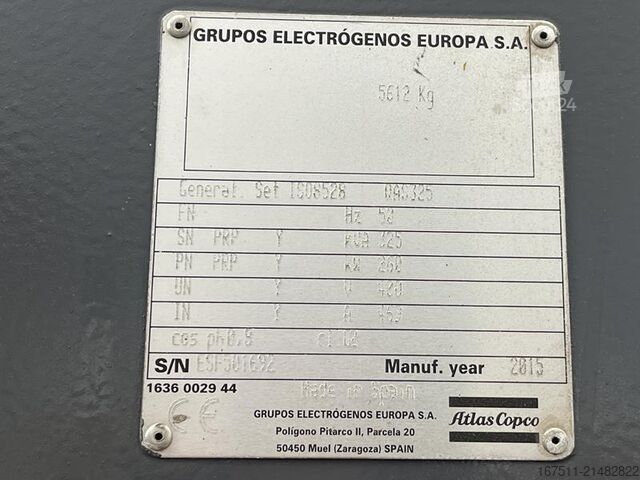 GRUPOS ELECTRÓGENOS EUROPA S.A.
5612 Kg
Generat. Set ISO8528 QAS325
FN Hz 50
SN PRP Y kVA 325
PN PRP Y kW 260
UN Y V 400
IN Y A 469
cos ph0,8
S/N Manuf. year 2015
1636 0029 44 Made in Spain
CE
GRUPOS ELECTRÓGENOS EUROPA S.A.
Polígono Pitarco II, Parcela 20
50450 Muel (Zaragoza) SPAIN
Atlas Copco
167511-21482822